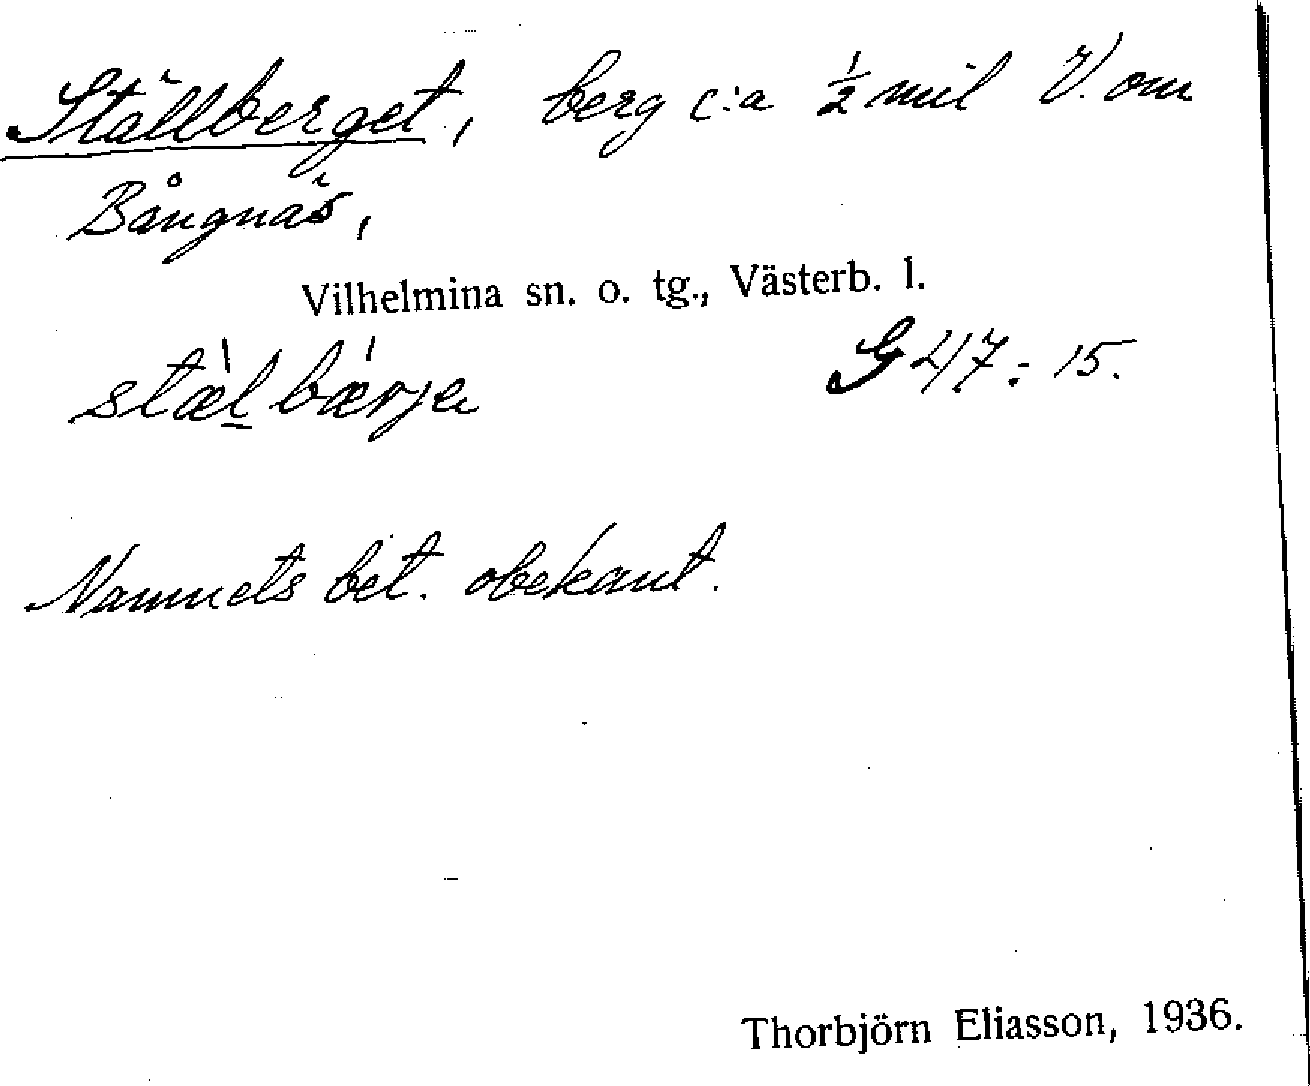 Ställberget, berg c:a ½ mil V. om
Bångnäs,
Vilhelmina sn. o. tg., Västerb. l.
stæ̀l bǽrje G 47: 15.
Namnets bet. obekant.
Thorbjörn Eliasson, 1936.